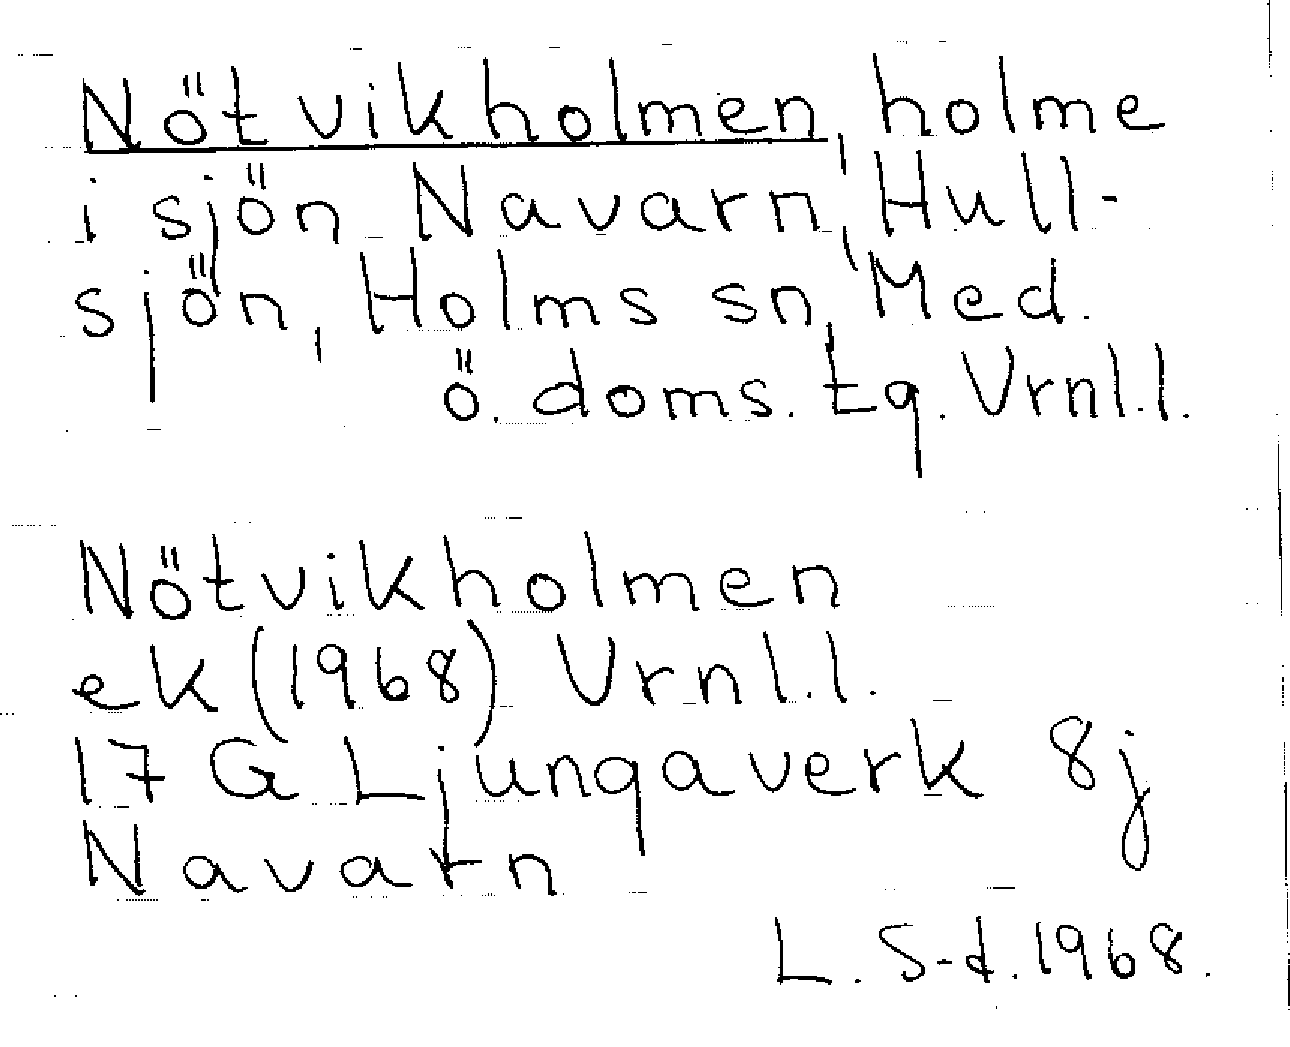 Nötvikholmen, holme
i sjön Navarn, Hull-
sjön, Holms sn, Med.
ö. doms. tg. Vrnl.l.
Nötvikholmen
ek (1968) Vrnl.l.
17 G Ljungaverk 8j
Navarn
L. S-d. 1968.